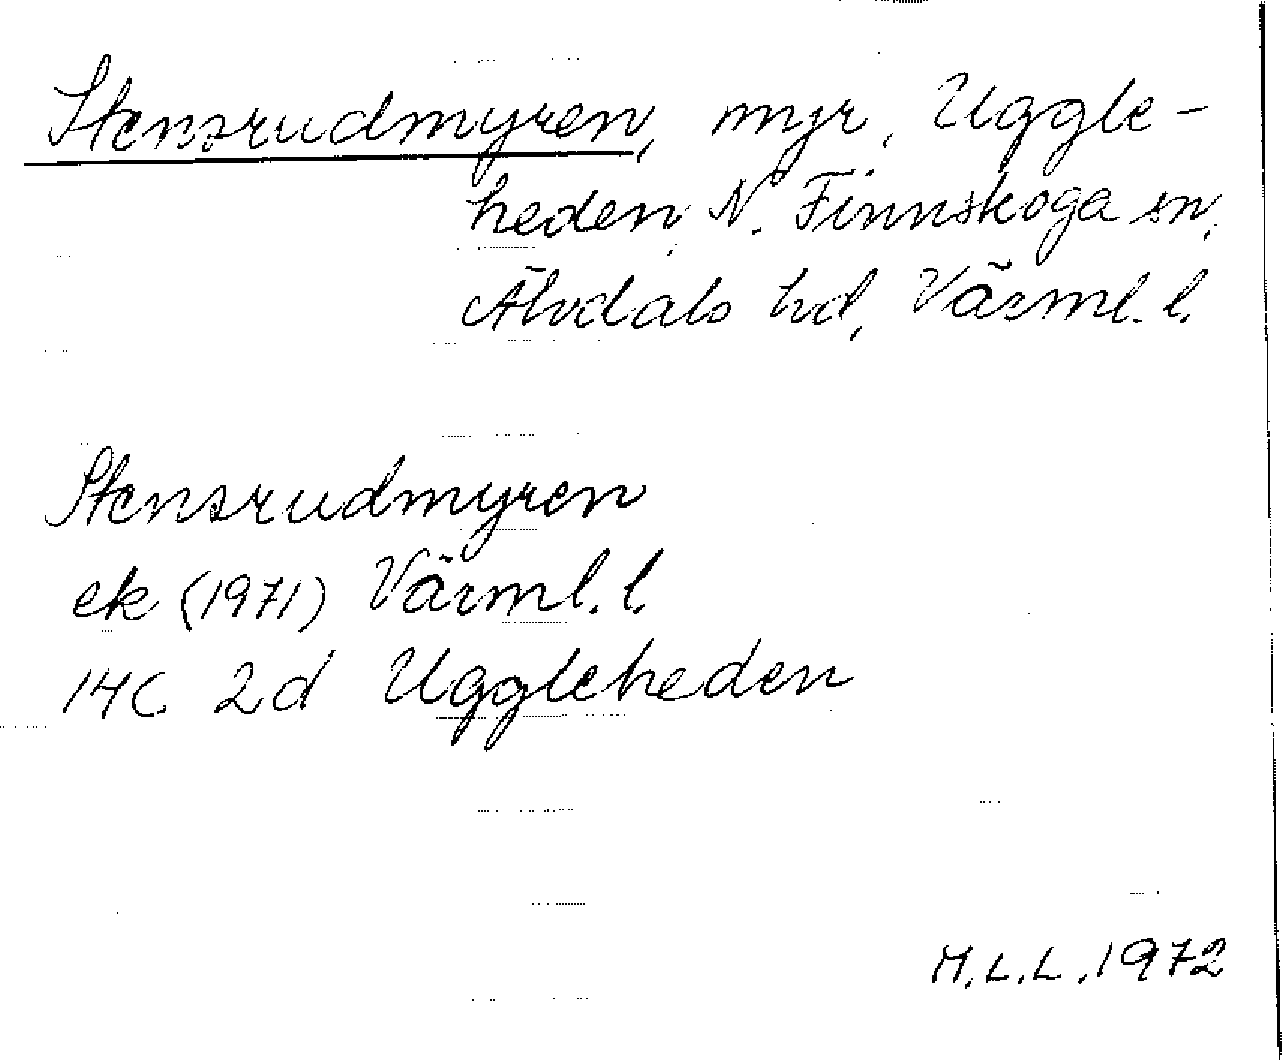 Stensrudmyren, myr, Uggle-
heden, N. Finnskoga sn,
Älvdals hd, Värml. l.
Stensrudmyren
ek (1971) Värml. l.
14C 2d Uggleheden
M.L.L. 1972